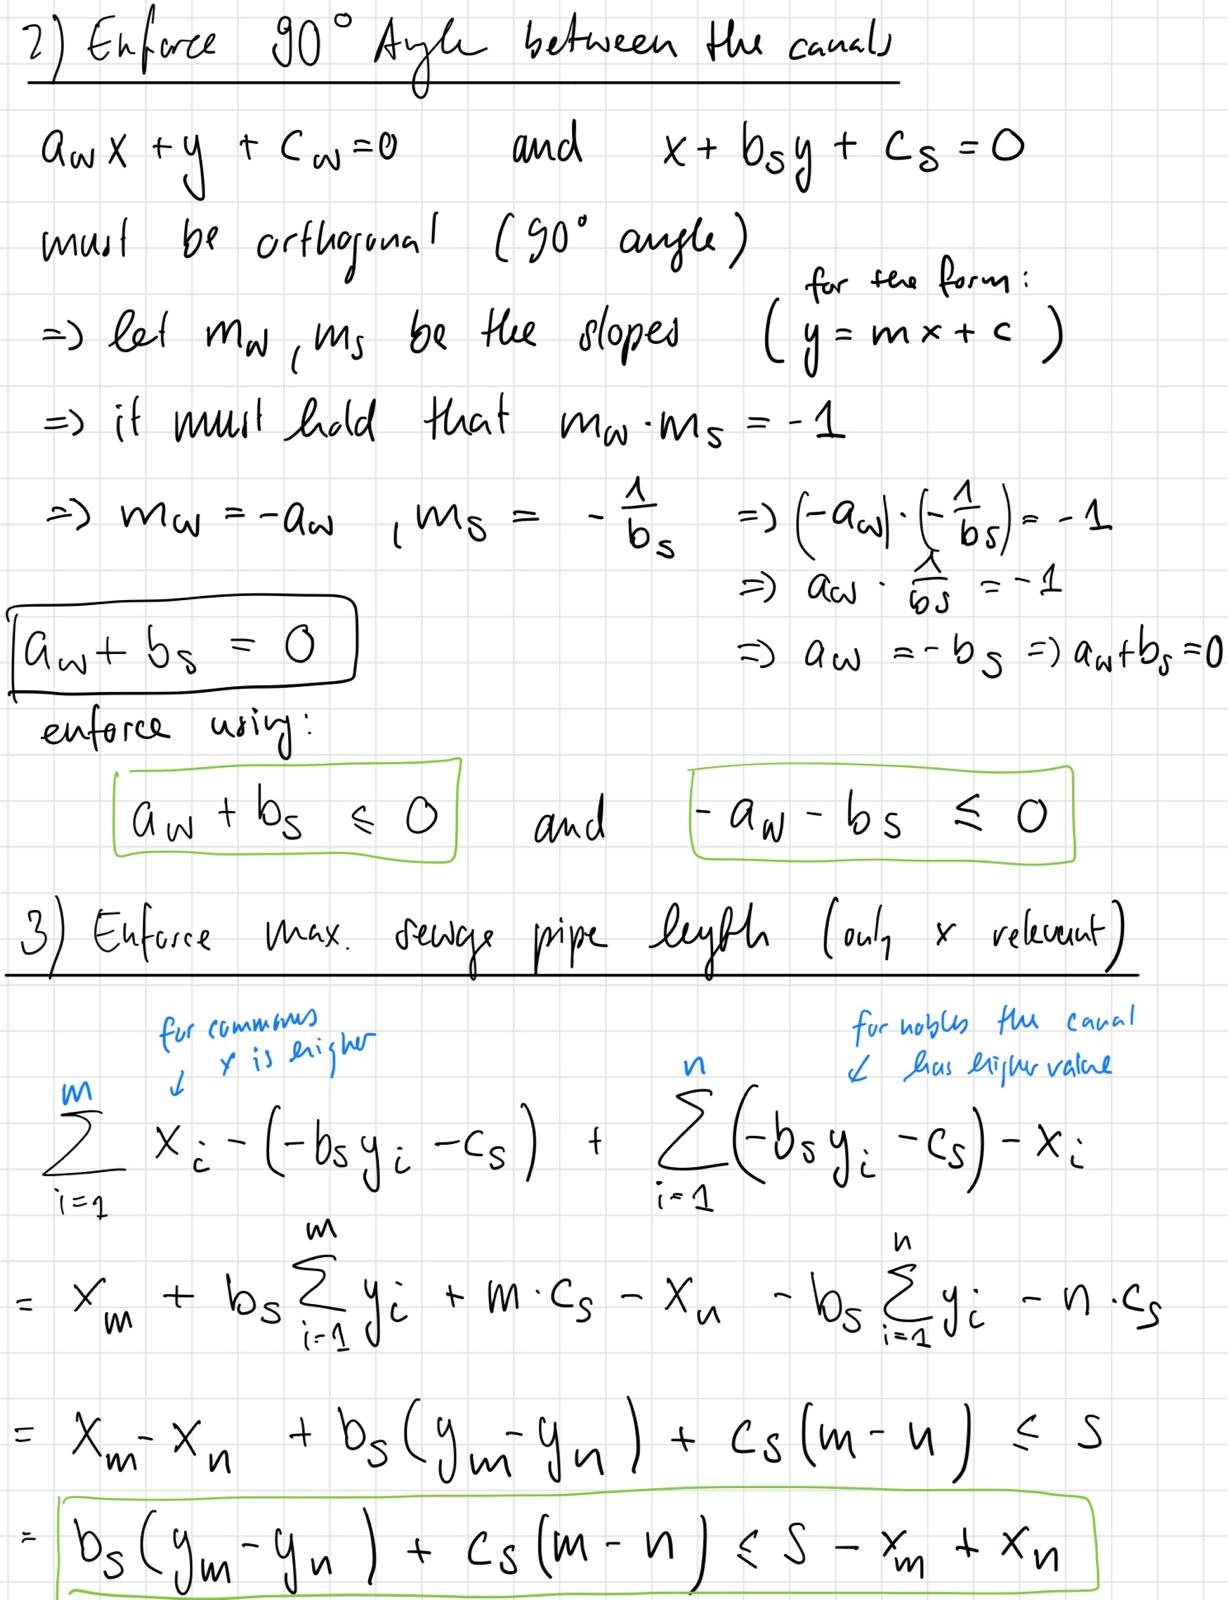 2) Enforce 90° Angle between the canals
a_w x + y + c_w = 0 and x + b_s y + c_s = 0
must be orthogonal (90° angle)
for the form:
=> let m_w, m_s be the slopes (y = mx + c)
=> it must hold that m_w · m_s = -1
=> m_w = -a_w , m_s = - 1/b_s => (-a_w) · (-1/b_s) = -1
=> a_w · 1/b_s = -1
a_w + b_s = 0 => a_w = -b_s => a_w + b_s = 0
enforce using:
a_w + b_s ≤ 0 and -a_w - b_s ≤ 0
3) Enforce max. sewage pipe length (only x relevant)
for commons x is higher ↓ for nobles the canal ↓ has higher value
∑_{i=1}^{m} x_i - (-b_s y_i - c_s) + ∑_{i=1}^{n} (-b_s y_i - c_s) - x_i
= x_m + b_s ∑_{i=1}^{m} y_i + m · c_s - x_n - b_s ∑_{i=1}^{n} y_i - n · c_s
= x_m - x_n + b_s (y_m - y_n) + c_s (m - n) ≤ s
= b_s (y_m - y_n) + c_s (m - n) ≤ s - x_m + x_n